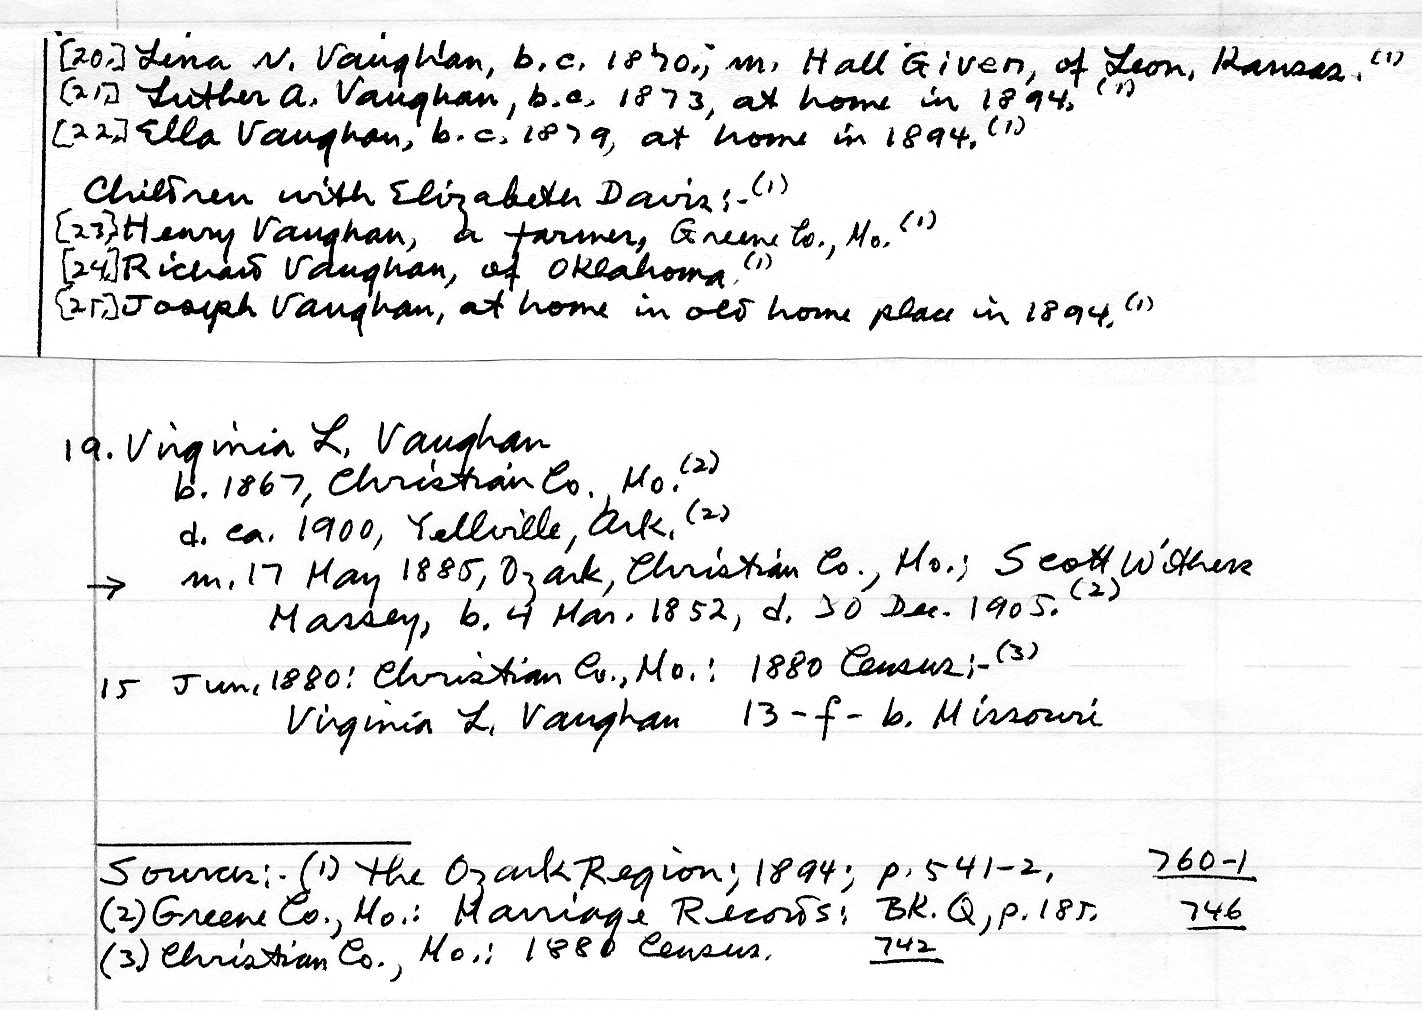 [20.] Lina N. Vaughan, b.c. 1870.; m. Hall Given, of Leon, Kansas.(1)
[21.] Luther A. Vaughan, b.c. 1873, at home in 1894.(1)
[22.] Ella Vaughan, b.c. 1879, at home in 1894.(1)
Children with Elizabeth Davis:-(1)
[23.] Henry Vaughan, a farmer, Greene Co., Mo.(1)
[24.] Richard Vaughan, of Oklahoma.(1)
[25.] Joseph Vaughan, at home in old home place in 1894.(1)
19. Virginia L. Vaughan
b. 1867, Christian Co., Mo.(2)
d. ca. 1900, Yellville, Ark.(2)
→ m. 17 May 1885, Ozark, Christian Co., Mo.; Scott Withers
Massey, b. 4 Mar. 1852, d. 30 Dec. 1905.(2)
15 Jun. 1880: Christian Co., Mo.: 1880 Census:-(3)
Virginia L. Vaughan 13-f- b. Missouri
Sources:- (1) The Ozark Region; 1894; p. 541-2. 760-1
(2) Greene Co., Mo.: Marriage Records: BK. Q, p. 185. 746
(3) Christian Co., Mo.: 1880 Census. 742